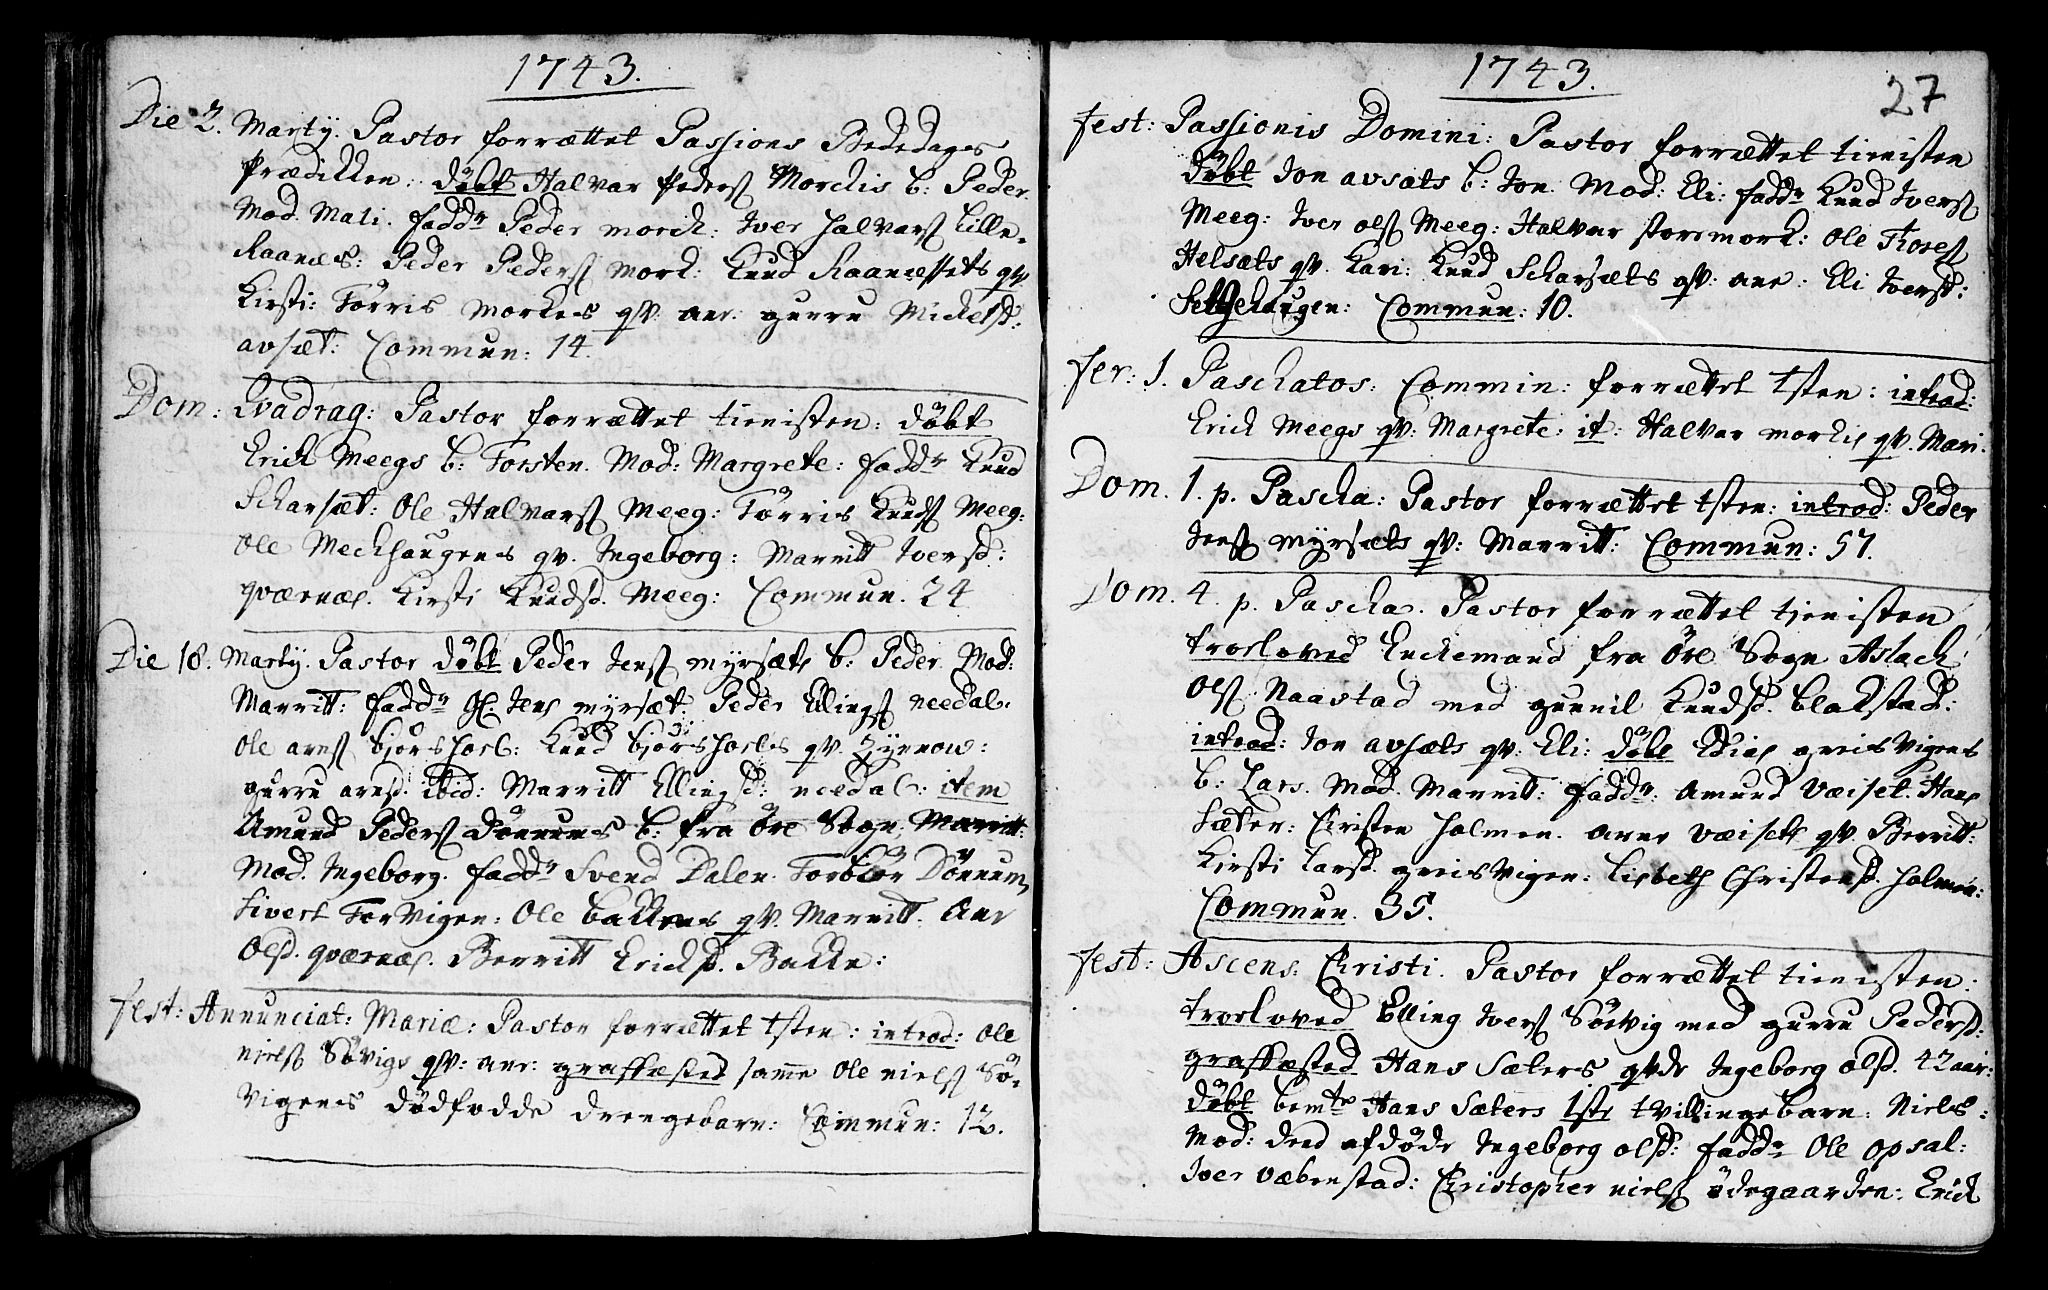 1743.
Die 2. Martij. Pastor forrættet Passions Bededags
Prædikken: döbt Halvar Peders Morchis b: Peder
Mod. Mali. fadd: Peder morch: Iver Halvars Lille-
Raanæs: Peder Peders Mork: Knud Raanæssets qv.
Kirsti: Törris Morkes qv. Ane: gurru Michelsd:
avsæt: Commun: 14.
Dom: Qvadrag: Pastor forrættet tienisten: döbt
Erich Meegs b: Torsten. Mod: Margrete: fadd: Knud
Scharsæt: Ole Halvars Meeg: Törris Knuds Meeg:
Ole Meekhaugens qv. Ingeborg: Marritt Iversd:
qværnæs. Kirsti Knudsd. Meeg: Commun. 24
Die 18. Martij. Pastor döbt Peder Jens myrsæts b: Peder. Mod:
Marritt: fadd: gl. Jens myrsæt. Peder Ellings needal.
Ole arens bjørshoel: Knud bjørshoels qv.
gurru arnsd. ibid: Marritt Ellingsd: needal: item
Amund Peders Dönnums b: fra Öre Sogn: Marritt:
Mod. Ingeborg. fadd: Svend Dalen. Torbiör Dönnum,
Sivert Torvigen: Ole bakkens qv. Marritt. Ane
Olsd. qværnæs. Berritt Ericksd. Bakke:
fest: Annunciat: Mariæ: Pastor forrættet tsten: introd: Ole
niels Sövigs qv: ane: graffæsted samme Ole niels Sö-
vigens dödfödde drengebarn: Commun: 12.
1743.
27
fest: Passionis Domini: Pastor forrættet tienisten
döbt Jon avsæts b: Jon. Mod: Eli: fadd: Knud Ivers
Meeg: Iver ols Meeg: Halvar storemork: Ole Tores
Helsæts qv. Kari: Knud Scharsæts qv: ane: Eli Iversd:
Selgehaugen: Commun: 10.
fer: 1. Paschatos: Commin: forrættet tsten: introd:
Erich Meegs qv: Margrete: it: Halvar morkis qv. Mari.
Dom. 1. p. Pascha: Pastor forrættet tsten: introd: Peder
Jens myrsæts qv: Marritt: Commun: 57.
Dom. 4. p. Pascha. Pastor forrættet tjenisten
troeloved Enckemand fra Öre Sogn Aslach
Ols Naastad med gunnil Knudsd. Blakstad:
introd: Jon avsæts qv: Eli: döbt Edis greisvigens
b: Lars. Mod. Marritt: fadd: Amund Væiset. Hans
Sæter: Christen Holmen. Arne væisets qv. Berritt:
Kirsti Larsd. greisvigen: Lisbeth Christensd. Holmen:
Commun. 35.
fest: Ascens: Christi. Pastor forrættet tienisten:
troeloved Elling Ivers Söevig med gurru Pedersd:
graffæsted Hans Sæters qvde Ingeborg olsd. 42 aar:
döbt bemte Hans Sæters 1ste tvillingebarn: Niels:
Mod: dend afdöde Ingeborg olsd: fadd: Ole opsal:
Iver væbenstad: Christopher niels ödegaarden: Erich